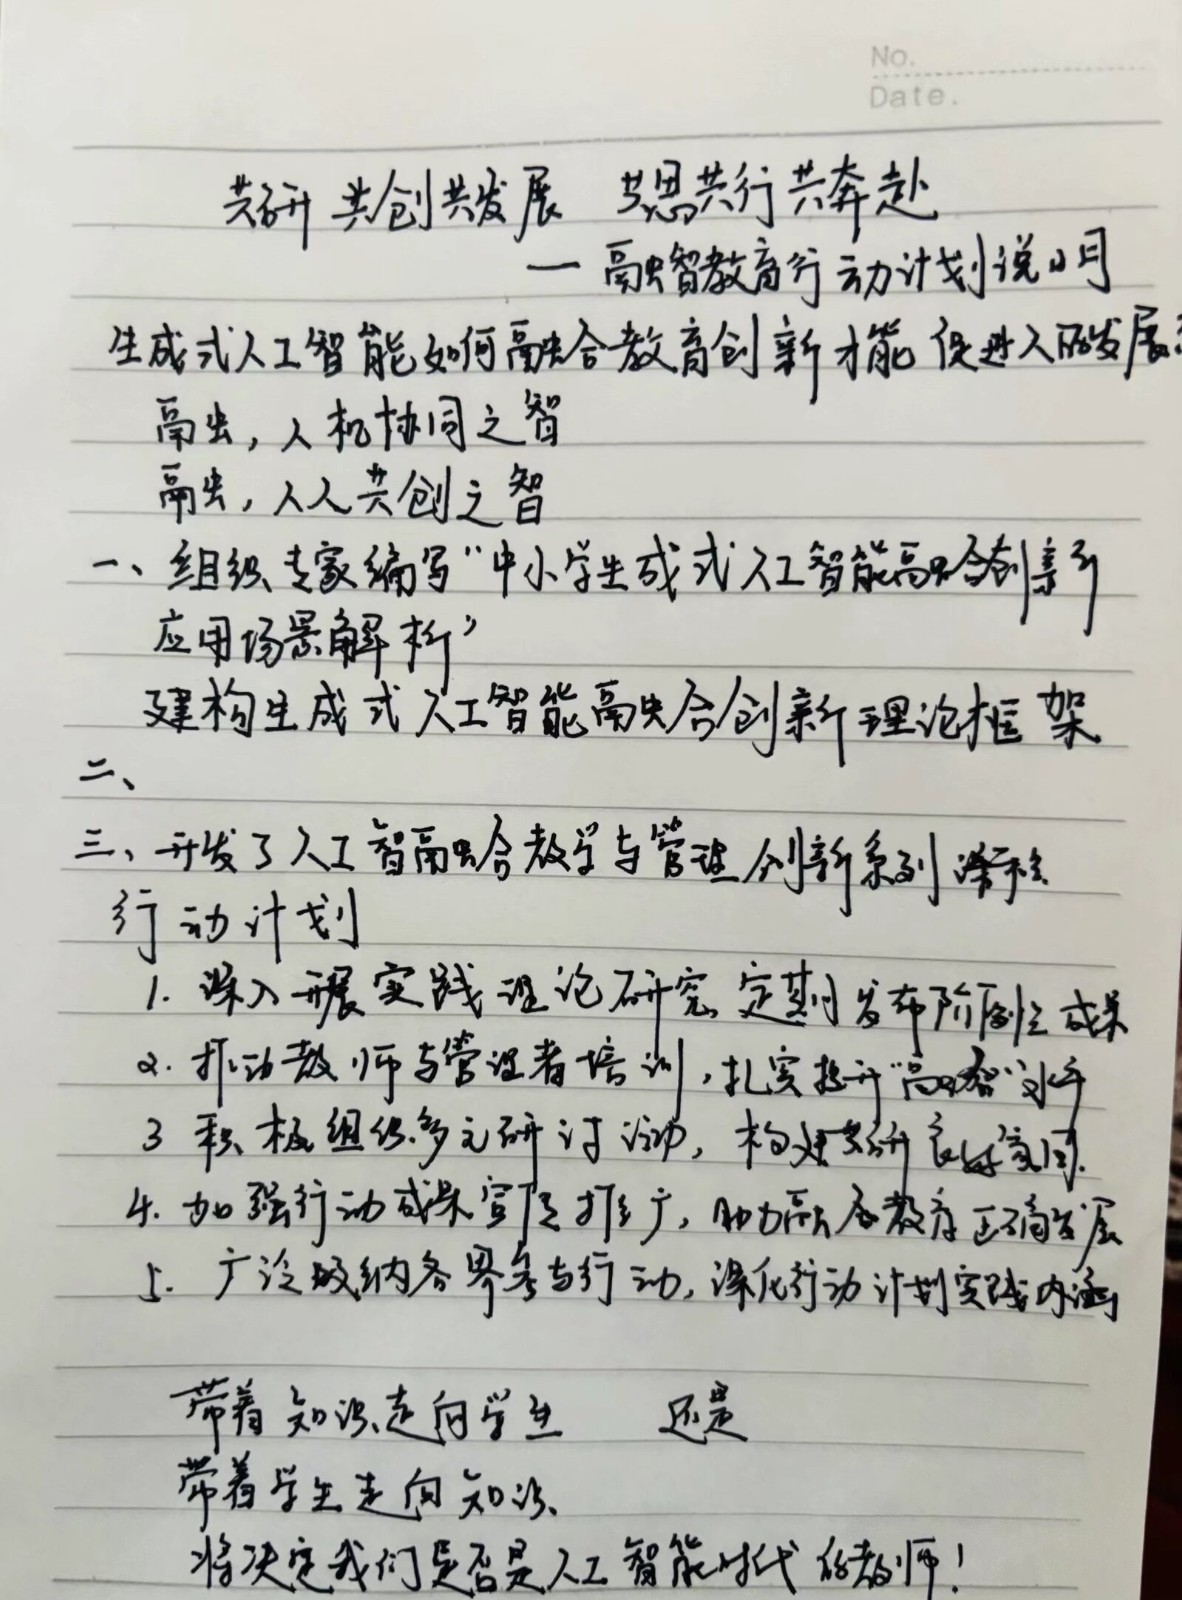 No.
Date.
共研共创共发展 共思共行共奔赴
— 融智教育行动计划说明
生成式人工智能如何融合教育创新才能促进人的发展
融,人机协同之智
融,人人共创之智
一、组织专家编写"中小学生成式人工智能融合创新
应用场景解析"
建构生成式人工智能融合创新理论框架
二、
三、开发了人工智融合教学与管理创新系列课程
行动计划
1. 深入开展实践理论研究 定期发布阶段性成果
2. 推动教师与管理者培训,扎实提升"融智"水平
3 积极组织多元研讨活动,构建共研良好氛围.
4. 加强行动成果宣传推广,助力融教育正确发展
5. 广泛吸纳各界参与行动,深化行动计划实践内涵
带着知识走向学生 还是
带着学生走向知识
将决定我们是否是人工智能时代的教师!